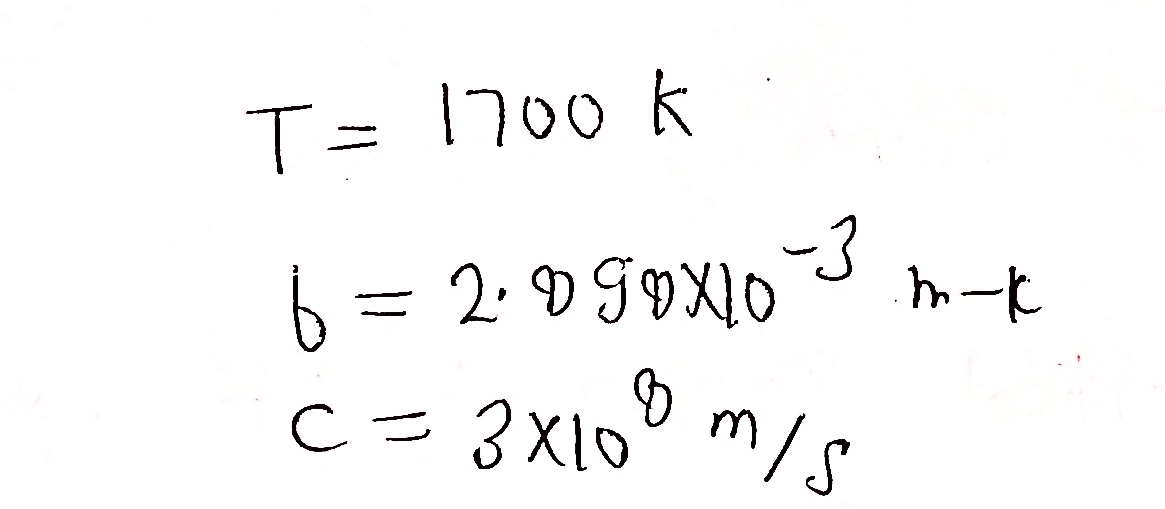 T = 1700 K
b = 2.898×10⁻³ m-k
c = 3×10⁸ m/s